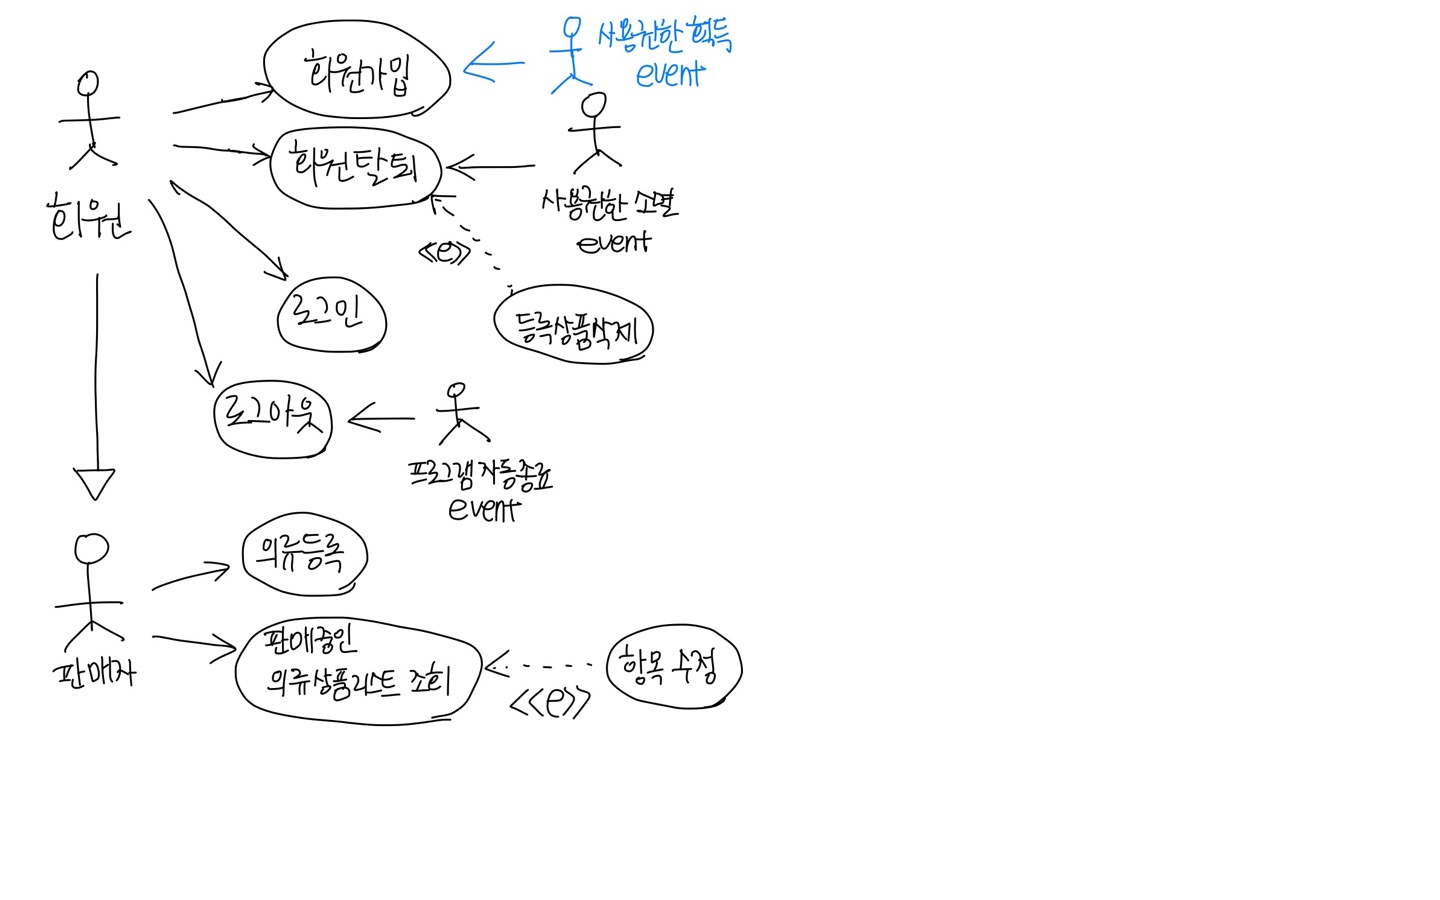 회원가입
사용권한 획득
event
회원탈퇴
사용권한 소멸
event
회원
<<e>>
로그인
등록상품삭제
로그아웃
프로그램 자동종료
event
의류등록
판매중인
의류상품리스트 조회
<<e>>
항목 수정
판매자